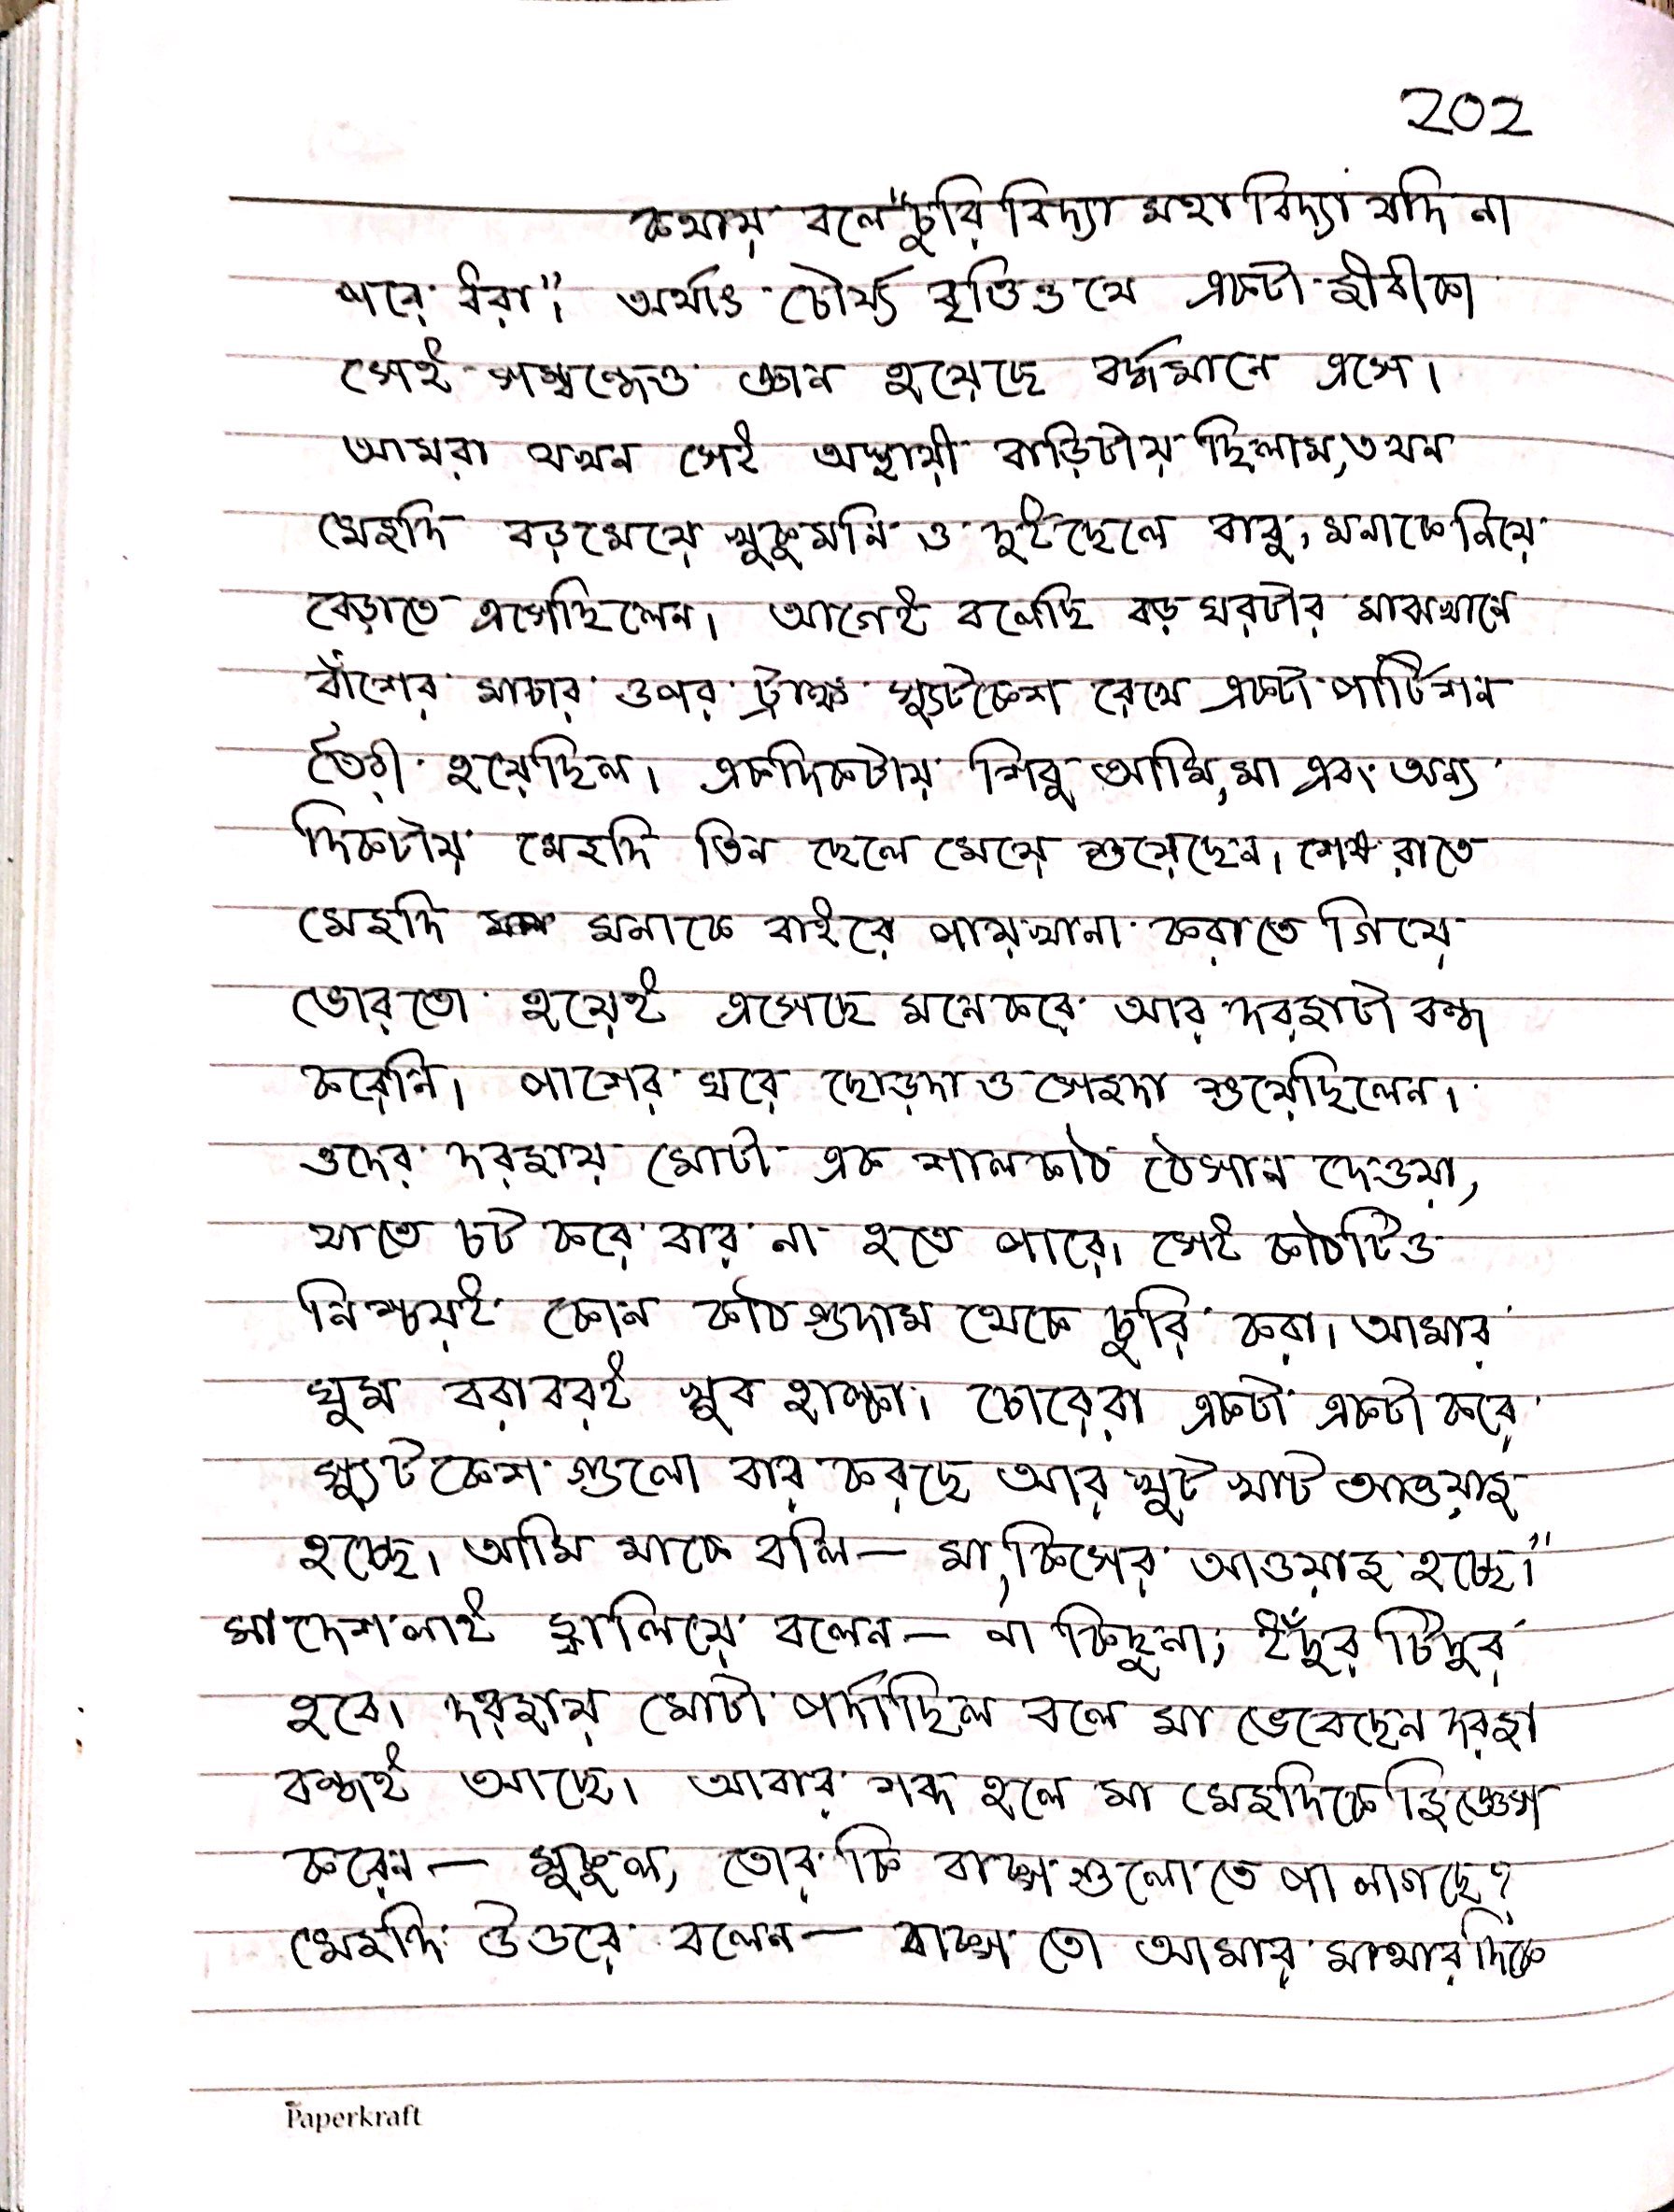 202
কথায় বলে "চুরি বিদ্যা মহাবিদ্যা যদি না
পরে ধরা"। অর্থাৎ চৌর্য্য বৃত্তিও যে একটা জীবীকা
সেই সম্বন্ধেও জ্ঞান হয়েছে বর্দ্ধমানে এসে।
আমরা যখন সেই অস্থায়ী বাড়িটায় ছিলাম, তখন
মেজদি বড়মেয়ে খুকুমনি ও দুইছেলে বাবু, মনাকে নিয়ে
বেড়াতে এসেছিলেন। আগেই বলেছি বড় ঘরটার মাঝখানে
বাঁশের মাচার ওপর ট্রাঙ্ক স্যুটকেশ রেখে একটা পার্টিশন
তৈরী হয়েছিল। একদিকটায় শিবু আমি, মা এবং অন্য
দিকটায় মেজদি তিন ছেলে মেয়ে শুয়েছেন। শেষ রাতে
মেজদি মনাকে বাইরে পায়খানা করাতে গিয়ে
ভোরতো হয়েই এসেছে মনেকরে আর দরজাটা বন্ধ
করেনি। পাশের ঘরে ছোড়দা ও সেজদা শুয়েছিলেন।
ওদের দরজায় মোটা এক শালকাঠ ঠেসান দেওয়া,
যাতে চট করে বার না হতে পারে। সেই কাঠটিও
নিশ্চয়ই কোন কাঠগুদাম থেকে চুরি করা। আমার
ঘুম বরাবরই খুব হাল্কা। চোরেরা একটা একটা করে
স্যুটকেশ গুলো বার করছে আর খুট খাট আওয়াজ
হচ্ছে। আমি মাকে বলি — মা, কিসের আওয়াজ হচ্ছে।"
মা দেশলাই জ্বালিয়ে বলেন — না কিছুনা, ইঁদুর টিদুর
হবে। দরজায় মোটা পর্দাছিল বলে মা ভেবেছেন দরজা
বন্ধই আছে। আবার শব্দ হলে মা মেজদিকে জিজ্ঞেস
করেন — মুকুল, তোর কি বাক্স গুলোতে পা লাগছে?
মেজদি উত্তরে বলেন — বাক্স তো আমার মাথার দিকে
Paperkraft